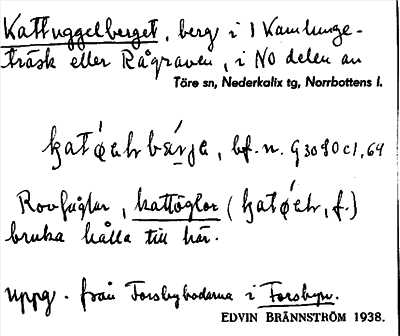 Kattuggelberget, berg i 1 Kamlunge-
träsk eller Rågraven, i NO delen av
Töre sn, Nederkalix tg, Norrbottens l.
bf. n. G 30
Rovfåglar, kattöglor (
bruka hålla till här.
Uppg. från Forsbybodarna i Forsbyn.
EDVIN BRÄNNSTRÖM 1938.